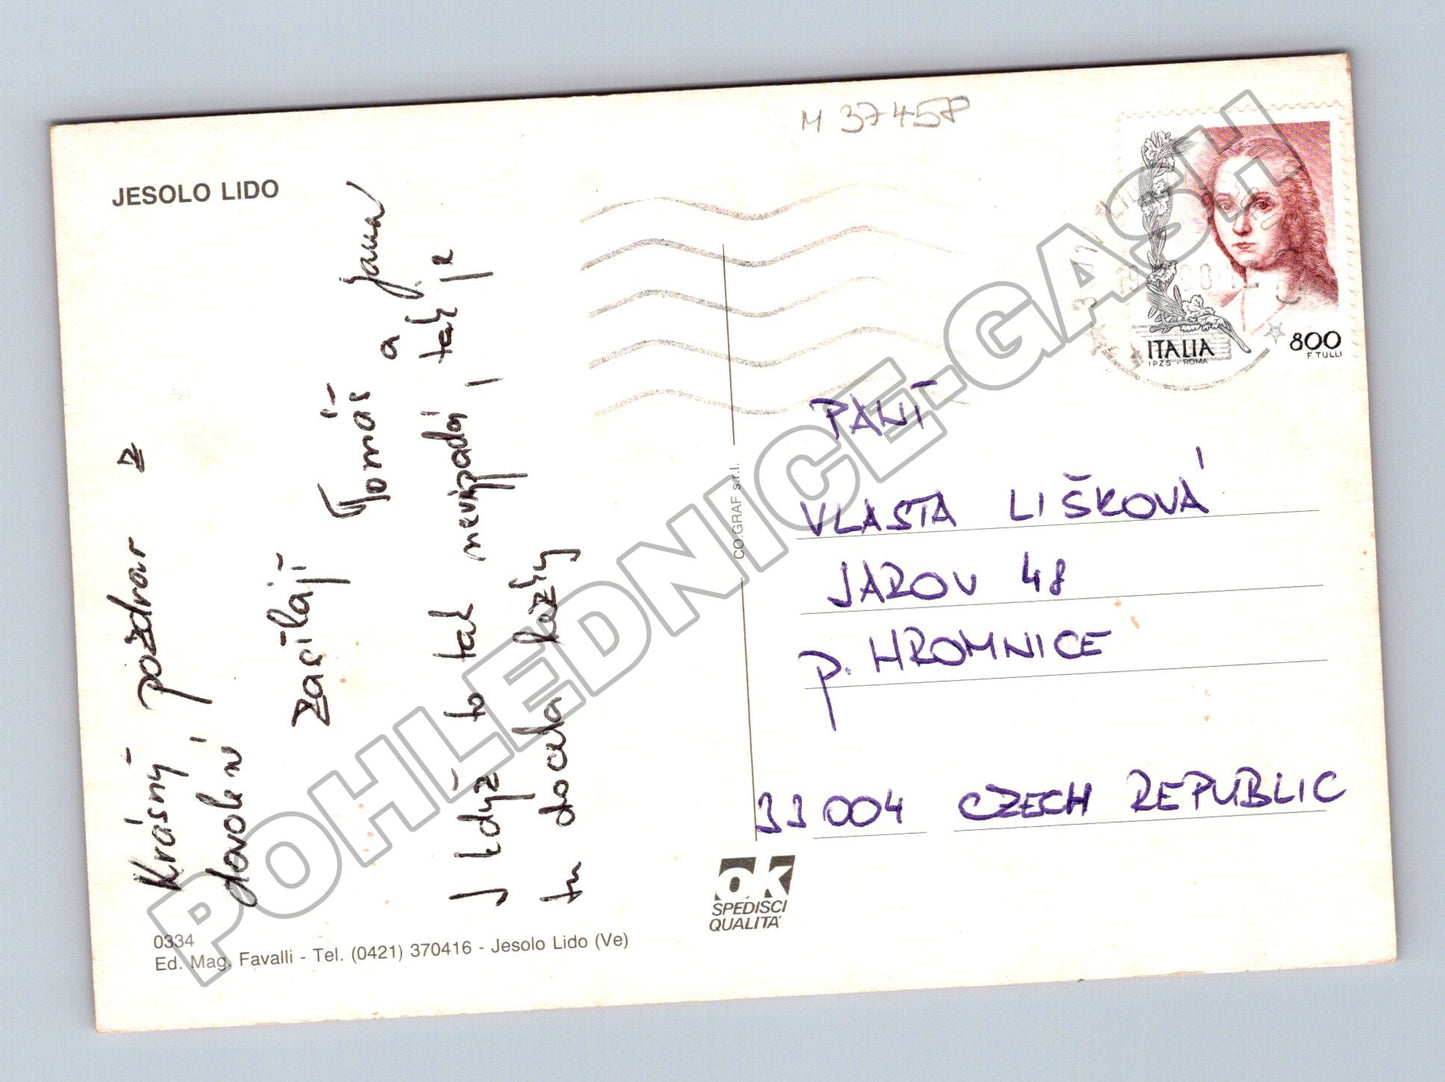 M 37458
JESOLO LIDO
Krásný pozdrav z
dovolení
zasílají
Tomáš a Jana
I když to tak nevypadá, tak je
tu docela hezky
PANÍ
VLASTA LIŠKOVÁ
JAROV 48
p. HROMNICE
33004 CZECH REPUBLIC
CO GRAF s.r.l.
ITALIA
IPZS - ROMA
800
F. TULLI
ok
SPEDISCI
QUALITA'
0334
Ed. Mag. Favalli - Tel. (0421) 370416 - Jesolo Lido (Ve)
POHLEDNICE-GASH